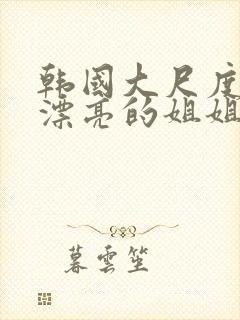 韩国大尺度
漂亮的姐姐
暮雲笙